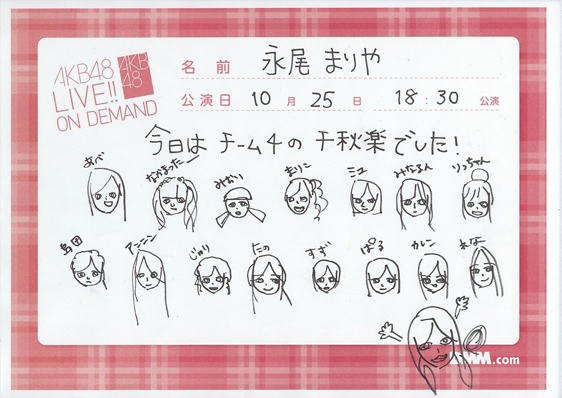 AKB48
LIVE!!
ON DEMAND
AKB
48
名前 永尾 まりや
公演日 10月 25日 18:30 公演
今日は チーム4の 千秋楽でした!
あべ なかまったー みおり まりこ ミュ みなるん りっちゃん
島田 アンニン じゅり たの すず ぱる カレン れな
.com